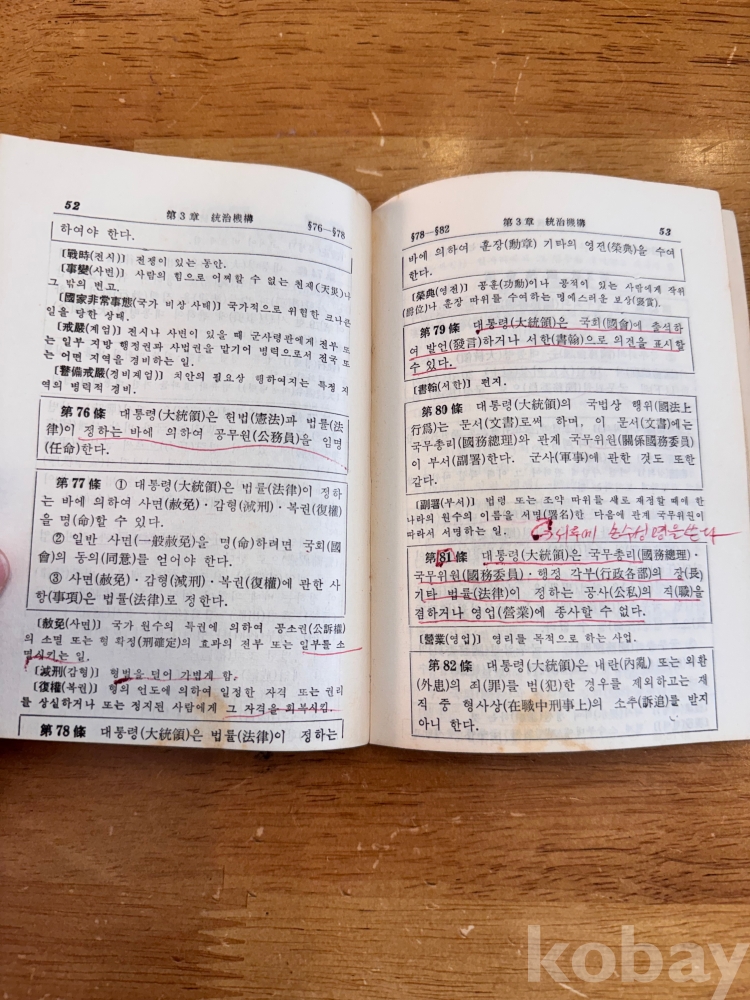 52
第3章 統治機構
§76—§78
하여야 한다.
〔戰時(전시)〕 전쟁이 있는 동안.
〔事變(사변)〕 사람의 힘으로 어찌할 수 없는 천재(天災)나
그 밖의 변고.
〔國家非常事態(국가 비상 사태)〕 국가적으로 위험한 크나큰
일을 당한 상태.
〔戒嚴(계엄)〕 전시나 사변이 있을 때 군사령관에게 전부 또
는 일부 지방 행정권과 사법권을 맡기어 병력으로서 전국 또
는 어떤 지역을 경비하는 일.
〔警備戒嚴(경비계엄)〕 치안의 필요상 행하여지는 특정 지
역의 병력적 경비.
第76條 대통령(大統領)은 헌법(憲法)과 법률(法
律)이 정하는 바에 의하여 공무원(公務員)을 임명
(任命)한다.
第77條 ① 대통령(大統領)은 법률(法律)이 정하
는 바에 의하여 사면(赦免)·감형(減刑)·복권(復權)
을 명(命)할 수 있다.
② 일반 사면(一般赦免)을 명(命)하려면 국회(國
會)의 동의(同意)를 얻어야 한다.
③ 사면(赦免)·감형(減刑)·복권(復權)에 관한 사
항(事項)은 법률(法律)로 정한다.
〔赦免(사면)〕 국가 원수의 특권에 의하여 공소권(公訴權)
의 소멸 또는 형 확정(刑確定)의 효과의 전부 또는 일부를 소
멸시키는 일.
〔減刑(감형)〕 형벌을 덜어 가볍게 함.
〔復權(복권)〕 형의 언도에 의하여 일정한 자격 또는 권리
를 상실하거나 또는 정지된 사람에게 그 자격을 회복시킴.
第78條 대통령(大統領)은 법률(法律)이 정하는
§78—§82
第3章 統治機構
53
바에 의하여 훈장(勳章) 기타의 영전(榮典)을 수여
한다.
〔榮典(영전)〕 공훈(功勳)이나 공적이 있는 사람에게 작위
(爵位)나 훈장 따위를 수여하는 명예스러운 보상(褒賞).
第79條 대통령(大統領)은 국회(國會)에 출석하
여 발언(發言)하거나 서한(書翰)으로 의견을 표시할
수 있다.
〔書翰(서한)〕 편지.
第80條 대통령(大統領)의 국법상 행위(國法上
行爲)는 문서(文書)로써 하며, 이 문서(文書)에는
국무총리(國務總理)와 관계 국무위원(關係國務委員)
이 부서(副署)한다. 군사(軍事)에 관한 것도 또한
같다.
〔副署(부서)〕 법령 또는 조약 따위를 새로 재정할 때에 한
나라의 원수의 이름을 서명(署名)한 다음에 관계 국무위원이
따라서 서명하는 일.
第81條 대통령(大統領)은 국무총리(國務總理)·
국무위원(國務委員)·행정 각부(行政各部)의 장(長)
기타 법률(法律)이 정하는 공사(公私)의 직(職)을
겸하거나 영업(營業)에 종사할 수 없다.
〔營業(영업)〕 영리를 목적으로 하는 사업.
第82條 대통령(大統領)은 내란(內亂) 또는 외환
(外患)의 죄(罪)를 범(犯)한 경우를 제외하고는 재
직 중 형사상(在職中刑事上)의 소추(訴追)를 받지
아니 한다.
kobay